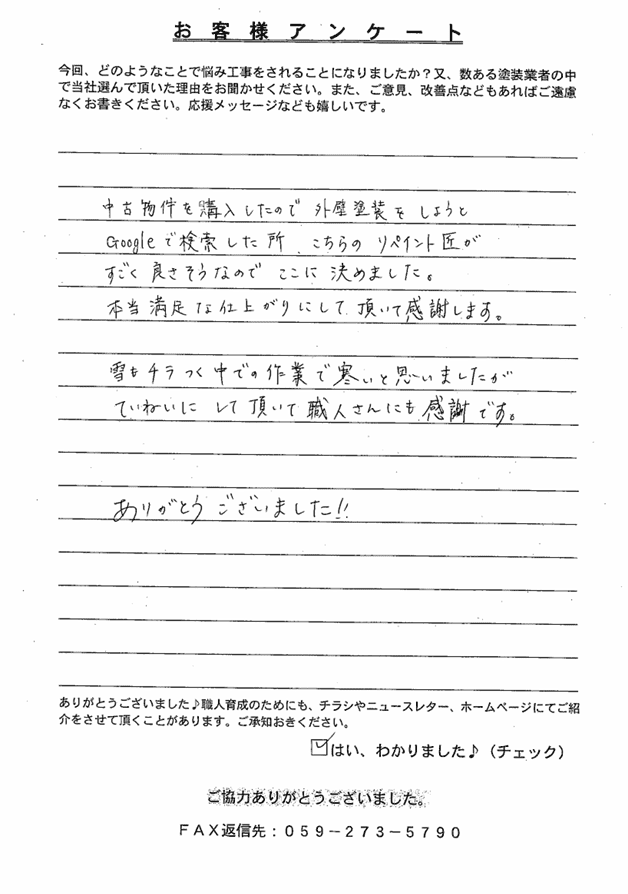 お客様アンケート
今回、どのようなことで悩み工事をされることになりましたか？又、数ある塗装業者の中
で当社選んで頂いた理由をお聞かせください。また、ご意見、改善点などもあればご遠慮
なくお書きください。応援メッセージなども嬉しいです。
中古物件を購入したので 外壁塗装を しようと
Googleで検索した所、こちらの リペイント匠が
すごく 良さそうなので ここに 決めました。
本当満足な仕上がりにして 頂いて感謝します。
雪もチラつく中での作業で寒いと思いましたが
ていねいに して 頂いて 職人さんにも 感謝です。
ありがとう ございました!!
ありがとうございました♪職人育成のためにも、チラシやニュースレター、ホームページにてご紹
介をさせて頂くことがあります。ご承知おきください。
☑はい、わかりました♪（チェック）
ご協力ありがとうございました。
ＦＡＸ返信先：０５９－２７３－５７９０